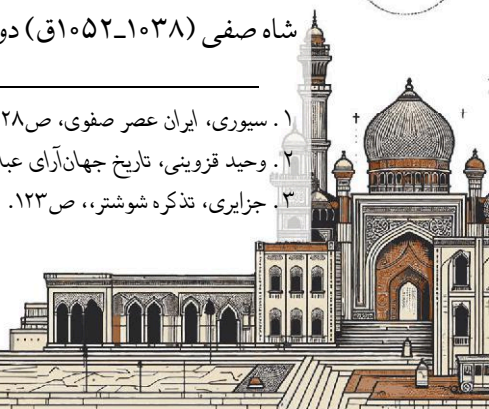 شاه صفی (۱۰۳۸ـ۱۰۵۲ق)
۱. سیوری، ایران عصر صفوی، ص۲۸
۲. وحید قزوینی، تاریخ جهان‌آرای
۳. جزایری، تذکره شوشتر،، ص۱۲۳.